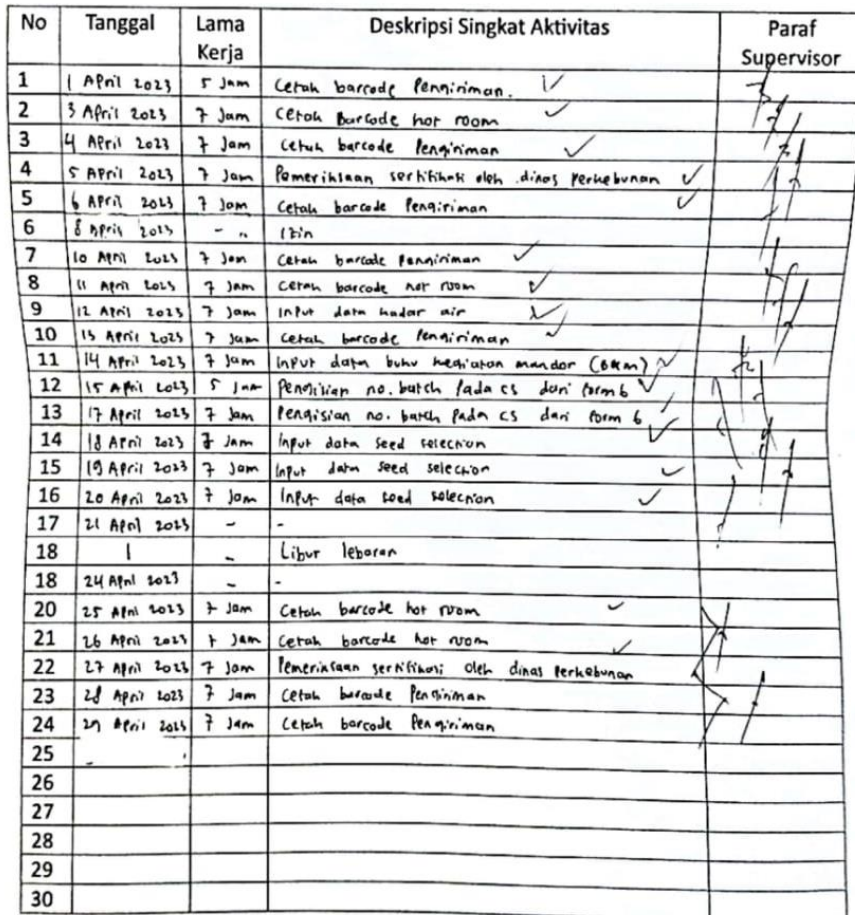 No Tanggal Lama Kerja Deskripsi Singkat Aktivitas Paraf Supervisor
1 1 April 2023 5 Jam Cetak barcode Pengiriman.
2 3 April 2023 7 Jam Cetak Barcode hot room
3 4 April 2023 7 Jam Cetak barcode Pengiriman
4 5 April 2023 7 Jam Pemeriksaan sertifikasi oleh dinas perkebunan
5 6 April 2023 7 Jam Cetak barcode Pengiriman
6 8 April 2023 - " Izin
7 10 April 2023 7 Jam Cetak barcode Pengiriman
8 11 April 2023 7 Jam Cetak barcode hot room
9 12 April 2023 7 Jam Input data kadar air
10 13 April 2023 7 Jam Cetak barcode Pengiriman
11 14 April 2023 7 Jam Input data buku kegiatan mandor (BKM)
12 15 April 2023 5 Jam Pengisian no. batch Pada CS dari form 6
13 17 April 2023 7 Jam Pengisian no. batch Pada CS dari form 6
14 18 April 2023 7 Jam Input data seed selection
15 19 April 2023 7 Jam Input data seed selection
16 20 April 2023 7 Jam Input data seed selection
17 21 April 2023 - -
18 - Libur lebaran
18 24 April 2023 - -
20 25 April 2023 7 Jam Cetak barcode hot room
21 26 April 2023 7 Jam Cetak barcode hot room
22 27 April 2023 7 Jam Pemeriksaan sertifikasi oleh dinas Perkebunan
23 28 April 2023 7 Jam Cetak barcode Pengiriman
24 29 April 2023 7 Jam Cetak barcode Pengiriman
25
26
27
28
29
30